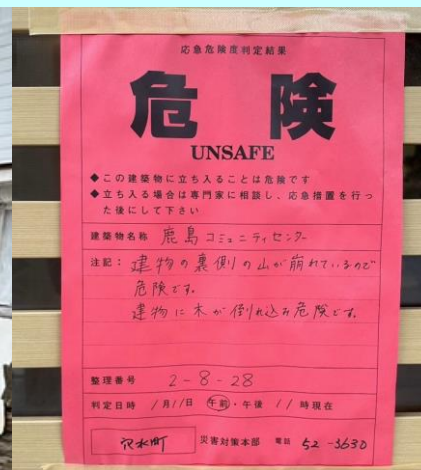 応急危険度判定結果
危険
UNSAFE
◆この建築物に立ち入ることは危険です
◆立ち入る場合は専門家に相談し、応急措置を行っ
た後にして下さい
建築物名称 鹿島コミュニティセンター
注記:建物の裏側の山が崩れているので
危険です。
建物に木が倒れ込み危険です。
整理番号 2-8-28
判定日時 1月11日 午前・午後 11時現在
穴水町 災害対策本部 電話 52-3630